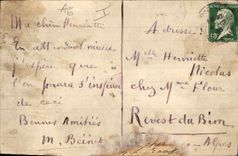 Ma chère Henriette
En attendant mieux
j'espère que
l'on pourra s'inspirer
de ceci
Bonnes Amitiés
M. Beinet
Adresse :
Mlle Henriette
Nicolas
chez Mme Flour
Revest du Bion
Alpes